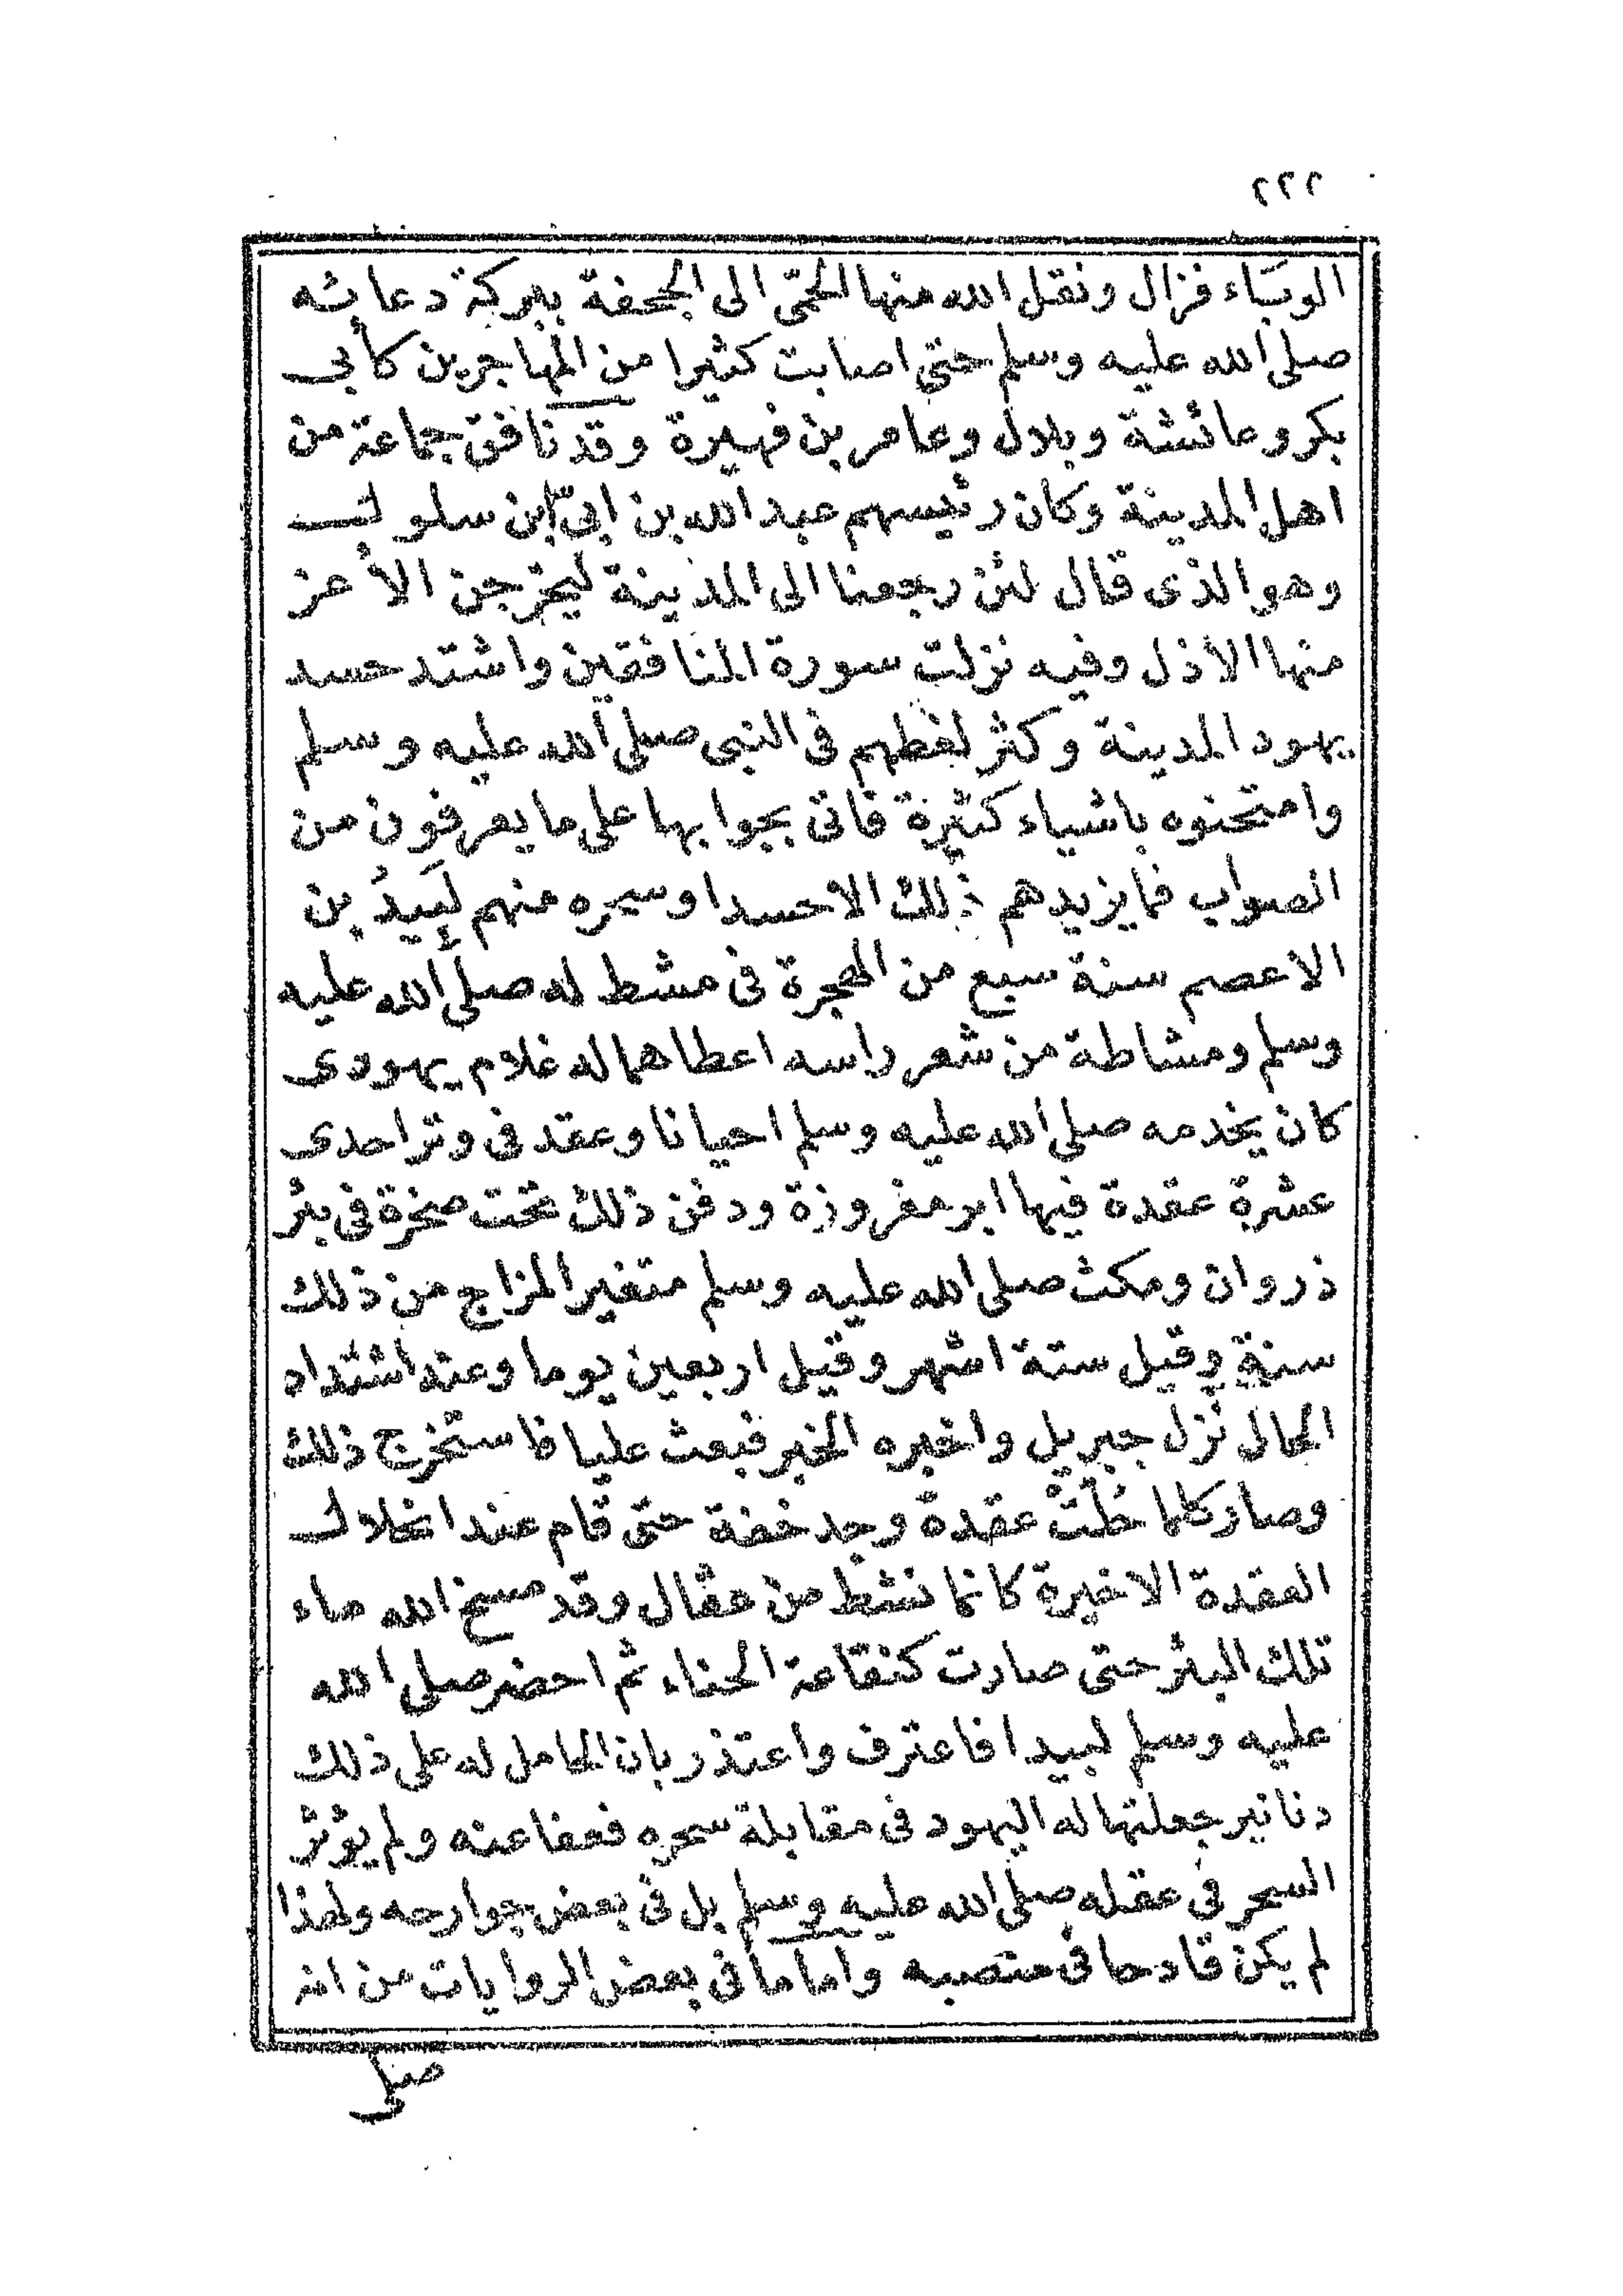 ٢٢٢
الوباء فزال ونقل الله منها الحمّى الى الجحفة ببركة دعائه
صلى الله عليه وسلم حتى اصابت كثيرا من المهاجرين كأبى
بكر وعائشة وبلال وعامر بن فهيرة وقد نافق جماعة من
اهل المدينة وكان رئيسهم عبد الله بن ابىّ ابن سلول
وهو الذى قال لئن رجعنا الى المدينة ليخرجن الأعز
منها الأذل وفيه نزلت سورة المنافقين واشتد حسد
يهود المدينة وكثر لغطهم فى النبى صلى الله عليه وسلم
وامتحنوه باشياء كثيرة فاتى بجوابها على ما يعرفون من
الصواب فما يزيدهم ذلك الا حسدا وسحره منهم لَبِيدُ بن
الاعصم سنة سبع من الهجرة فى مشط له صلى الله عليه
وسلم ومشاطة من شعر راسه اعطاهما له غلام يهودى
كان يخدمه صلى الله عليه وسلم احيانا وعقد فى وتر احدى
عشرة عقدة فيها ابر مغروزة ودفن ذلك تحت صخرة فى بئر
ذروان ومكث صلى الله عليه وسلم متغير المزاج من ذلك
سنة وقيل ستة اشهر وقيل اربعين يوما وعند اشتداد
الحال نزل جبريل واخبره الخبر فبعث عليا فاستخرج ذلك
وصار كلما حُلَّتْ عقدة وجد خفة حتى قام عند انحلال
العقدة الاخيرة كانما نشط من عقال وقد مسخ الله ماء
تلك البئر حتى صارت كنقاعة الحناء ثم احضر صلى الله
عليه وسلم لبيدا فاعترف واعتذر بان الحامل له على ذلك
دنانير جعلتها له اليهود فى مقابلة سحره فعفا عنه ولم يؤثر
السحر فى عقله صلى الله عليه وسلم بل فى بعض جوارحه ولهذا
لم يكن قادحا فى منصبه واما ما فى بعض الروايات من انه
صلى